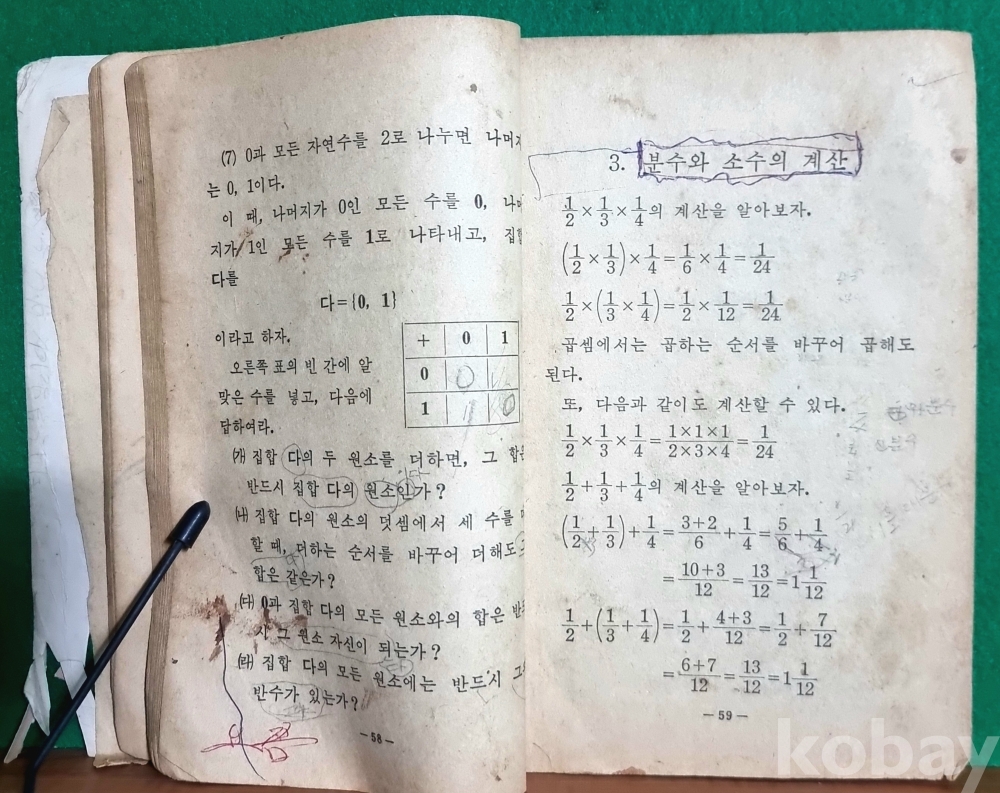 (7) 0과 모든 자연수를 2로 나누면 나머지
는 0, 1이다.
이 때, 나머지가 0인 모든 수를 0, 나머
지가 1인 모든 수를 1로 나타내고, 집합
다를
다={0, 1}
이라고 하자.
오른쪽 표의 빈 간에 알
맞은 수를 넣고, 다음에
답하여라.
+ 0 1
0 0
1 1 0
㈎ 집합 다의 두 원소를 더하면, 그 합은
반드시 집합 다의 원소인가?
㈏ 집합 다의 원소의 덧셈에서 세 수를
할 때, 더하는 순서를 바꾸어 더해도
합은 같은가?
㈐ 0과 집합 다의 모든 원소와의 합은 반드
시 그 원소 자신이 되는가?
㈑ 집합 다의 모든 원소에는 반드시 그
반수가 있는가?
－58－
3. 분수와 소수의 계산
1/2×1/3×1/4의 계산을 알아보자.
(1/2×1/3)×1/4=1/6×1/4=1/24
1/2×(1/3×1/4)=1/2×1/12=1/24
곱셈에서는 곱하는 순서를 바꾸어 곱해도
된다.
또, 다음과 같이도 계산할 수 있다.
1/2×1/3×1/4=1×1×1/2×3×4=1/24
1/2+1/3+1/4의 계산을 알아보자.
(1/2+1/3)+1/4=3+2/6+1/4=5/6+1/4
=10+3/12=13/12=1 1/12
1/2+(1/3+1/4)=1/2+4+3/12=1/2+7/12
=6+7/12=13/12=1 1/12
－59－
kobay